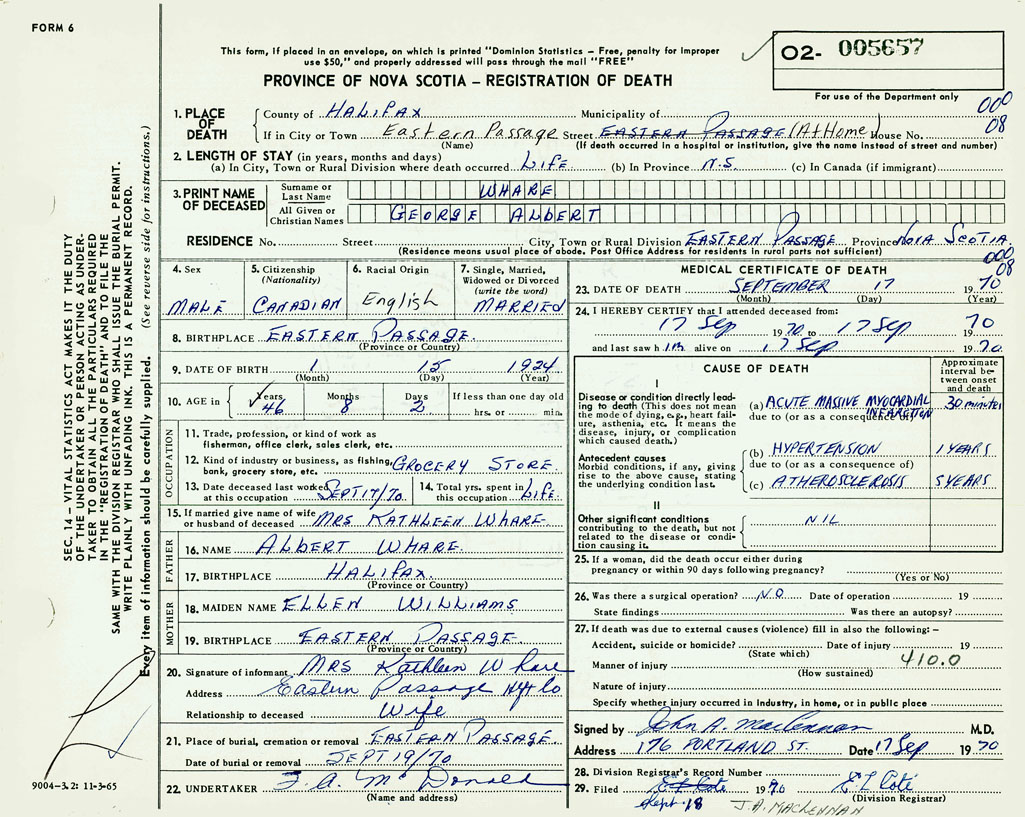 FORM 6
This form, if placed in an envelope, on which is printed "Dominion Statistics – Free, penalty for improper
use $50," and properly addressed will pass through the mail "FREE"
PROVINCE OF NOVA SCOTIA – REGISTRATION OF DEATH
O2- 005657
For use of the Department only
000
08
SEC. 14 – VITAL STATISTICS ACT MAKES IT THE DUTY
OF THE UNDERTAKER OR PERSON ACTING AS UNDER-
TAKER TO OBTAIN ALL THE PARTICULARS REQUIRED
IN THE "REGISTRATION OF DEATH" AND TO FILE THE
SAME WITH THE DIVISION REGISTRAR WHO SHALL ISSUE THE BURIAL PERMIT.
WRITE PLAINLY WITH UNFADING INK. THIS IS A PERMANENT RECORD.
Every item of information should be carefully supplied. (See reverse side for instructions.)
1. PLACE OF DEATH
County of HALIFAX Municipality of
If in City or Town Eastern Passage Street EASTERN PASSAGE (At Home) House No.
(Name) (If death occurred in a hospital or institution, give the name instead of street and number)
2. LENGTH OF STAY (in years, months and days)
(a) In City, Town or Rural Division where death occurred LIFE (b) In Province N.S. (c) In Canada (if immigrant)
3. PRINT NAME OF DECEASED
Surname or Last Name WHARE
All Given or Christian Names GEORGE ALBERT
RESIDENCE No. Street City, Town or Rural Division EASTERN PASSAGE Province NOVA SCOTIA
(Residence means usual place of abode. Post Office Address for residents in rural parts not sufficient)
000
08
4. Sex MALE
5. Citizenship (Nationality) CANADIAN
6. Racial Origin English
7. Single, Married, Widowed or Divorced (write the word) MARRIED
8. BIRTHPLACE EASTERN PASSAGE
(Province or Country)
9. DATE OF BIRTH 1 15 1924
(Month) (Day) (Year)
10. AGE in Years 46 Months 8 Days 2 If less than one day old
hrs. or min.
OCCUPATION
11. Trade, profession, or kind of work as
fisherman, office clerk, sales clerk, etc.
12. Kind of industry or business, as fishing, GROCERY STORE
bank, grocery store, etc.
13. Date deceased last worked at this occupation SEPT 17/70
14. Total yrs. spent in this occupation LIFE
15. If married give name of wife or husband of deceased MRS KATHLEEN WHARE
FATHER
16. NAME ALBERT WHARE
17. BIRTHPLACE HALIFAX
(Province or Country)
MOTHER
18. MAIDEN NAME ELLEN WILLIAMS
19. BIRTHPLACE EASTERN PASSAGE
(Province or Country)
20. Signature of informant MRS Kathleen Whare
Address Eastern Passage Hfx Co
Relationship to deceased Wife
21. Place of burial, cremation or removal EASTERN PASSAGE
Date of burial or removal SEPT 19/70
22. UNDERTAKER F. A. McDonald
(Name and address)
9004-3.2: 11-3-65
MEDICAL CERTIFICATE OF DEATH
23. DATE OF DEATH SEPTEMBER 17 1970
(Month) (Day) (Year)
24. I HEREBY CERTIFY that I attended deceased from:
17 Sep 1970 to 17 Sep 1970
and last saw him alive on 17 Sep 1970
CAUSE OF DEATH
Approximate interval be-
tween onset and death
I
Disease or condition directly lead-
ing to death (This does not mean
the mode of dying, e.g., heart fail-
ure, asthenia, etc. It means the
disease, injury, or complication
which caused death.)
(a) ACUTE MASSIVE MYOCARDIAL INFARCTION 30 minutes
due to (or as a consequence of)
Antecedent causes
Morbid conditions, if any, giving
rise to the above cause, stating
the underlying condition last.
(b) HYPERTENSION 1 YEARS
due to (or as a consequence of)
(c) ATHEROSCLEROSIS 5 YEARS
II
Other significant conditions
contributing to the death, but not
related to the disease or condi-
tion causing it.
NIL
25. If a woman, did the death occur either during
pregnancy or within 90 days following pregnancy?
(Yes or No)
26. Was there a surgical operation? NO Date of operation 19
State findings Was there an autopsy?
27. If death was due to external causes (violence) fill in also the following: –
Accident, suicide or homicide? Date of injury 19
(State which)
Manner of injury 410.0
(How sustained)
Nature of injury
Specify whether injury occurred in industry, in home, or in public place
Signed by John A. MacLennan M.D.
Address 176 PORTLAND ST. Date 17 Sep 1970
28. Division Registrar's Record Number
29. Filed E L Cote 1970 E L Coté
Sept. 18 (Division Registrar)
J.A. MACLENNAN